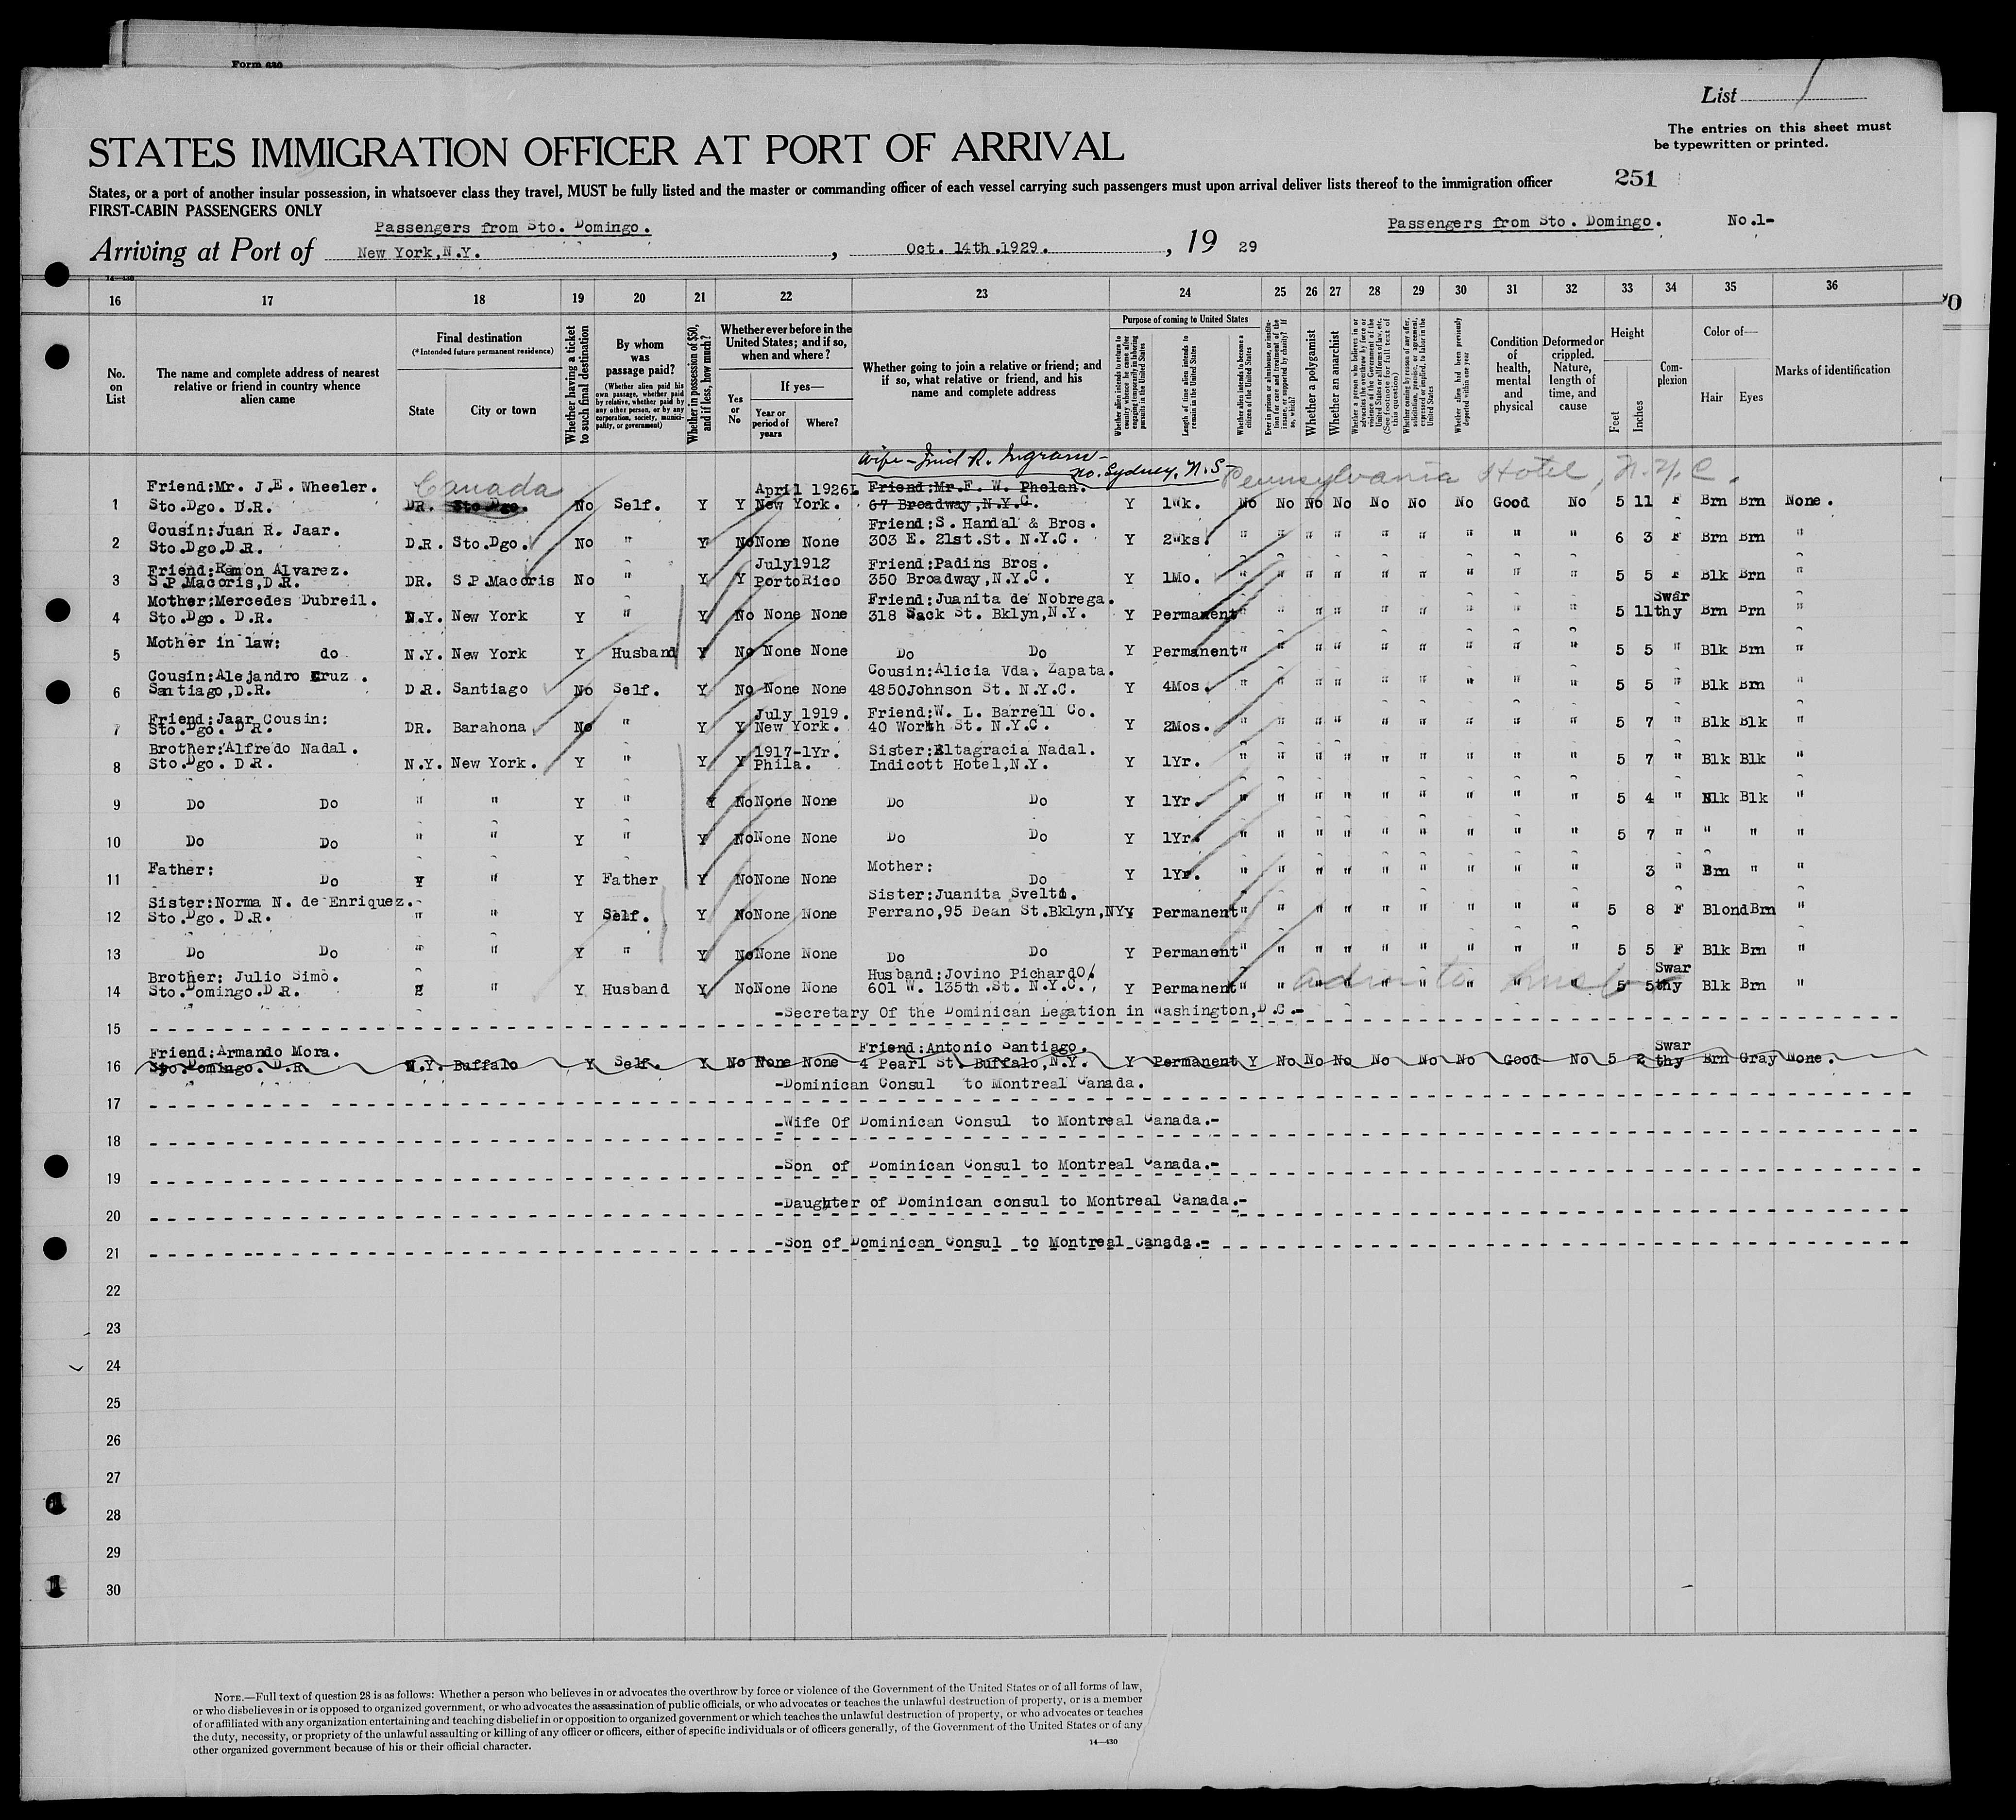 Form 630
List 1
The entries on this sheet must
be typewritten or printed.
STATES IMMIGRATION OFFICER AT PORT OF ARRIVAL
251
States, or a port of another insular possession, in whatsoever class they travel, MUST be fully listed and the master or commanding officer of each vessel carrying such passengers must upon arrival deliver lists thereof to the immigration officer
FIRST-CABIN PASSENGERS ONLY
Passengers from Sto. Domingo. Passengers from Sto. Domingo. No.1-
Arriving at Port of New York,N.Y. , Oct. 14th.1929. , 19 29
14—430
16 17 18 19 20 21 22 23 24 25 26 27 28 29 30 31 32 33 34 35 36
No. on List
The name and complete address of nearest relative or friend in country whence alien came
Final destination
(*Intended future permanent residence)
State
City or town
Whether having a ticket to such final destination
By whom was passage paid?
(Whether alien paid his own passage, whether paid by relative, whether paid by any other person, or by any corporation, society, municipality, or government)
Whether in possession of $50, and if less, how much?
Whether ever before in the United States; and if so, when and where?
Yes or No
If yes—
Year or period of years
Where?
Whether going to join a relative or friend; and if so, what relative or friend, and his name and complete address
Purpose of coming to United States
Whether alien intends to return to country whence he came after engaging temporarily in laboring pursuits in the United States
Length of time alien intends to remain in the United States
Whether alien intends to become a citizen of the United States
Ever in prison or almshouse, or institution for care and treatment of the insane, or supported by charity? If so, which?
Whether a polygamist
Whether an anarchist
Whether a person who believes in or advocates the overthrow by force or violence of the Government of the United States or all forms of law, etc. (See footnote for full text of this question)
Whether coming by reason of any offer, solicitation, promise, or agreement, expressed or implied, to labor in the United States
Whether alien had been previously deported within one year
Condition of health, mental and physical
Deformed or crippled. Nature, length of time, and cause
Height
Feet
Inches
Complexion
Color of—
Hair
Eyes
Marks of identification
Wife - R. Ingram -
No. Sydney, N.S. Pennsylvania Hotel, N.Y.C.
Friend:Mr. J.E. Wheeler. Canada April 1926 Friend:Mr.F. W. Phelan.
1 Sto.Dgo. D.R. DR. Sto Dgo. No Self. Y Y New York. 67 Broadway,N.Y.C. Y 1wk. No No No No No No No Good No 5 11 F Brn Brn None.
Cousin:Juan R. Jaar. Friend:S. Handal & Bros.
2 Sto.Dgo.D.R. D.R. Sto.Dgo. No " Y No None None 303 E. 21st.St. N.Y.C. Y 2wks. " " " " " " " " " 6 3 F Brn Brn "
Friend:Ramon Alvarez. July1912 Friend:Padins Bros.
3 S.P.Macoris,D.R. DR. S.P.Macoris No " Y Y PortoRico 350 Broadway,N.Y.C. Y 1Mo. " " " " " " " " " 5 5 F Blk Brn "
Mother:Mercedes Dubreil. Friend:Juanita de Nobrega. Swar
4 Sto.Dgo. D.R. N.Y. New York Y " Y No None None 318 Sack St. Bklyn,N.Y. Y Permanent " " " " " " " " " 5 11 thy Brn Brn "
Mother in law:
5 do N.Y. New York Y Husband Y No None None Do Do Y Permanent " " " " " " " " " 5 5 " Blk Brn "
Cousin:Alejandro Cruz. Cousin:Alicia Vda. Zapata.
6 Santiago,D.R. D.R. Santiago No Self. Y No None None 4850Johnson St. N.Y.C. Y 4Mos. " " " " " " " " " 5 5 " Blk Brn "
Friend:Jaar Cousin: July 1919. Friend:W. L. Barrell Co.
7 Sto.Dgo. D.R. DR. Barahona No " Y Y New York. 40 Worth St. N.Y.C. Y 2Mos. " " " " " " " " " 5 7 " Blk Blk "
Brother:Alfredo Nadal. 1917-1Yr. Sister:Eltagracia Nadal.
8 Sto.Dgo. D.R. N.Y. New York. Y " Y Y Phila. Indicott Hotel,N.Y. Y 1Yr. " " " " " " " " " 5 7 " Blk Blk "
9 Do Do " " Y " Y No None None Do Do Y 1Yr. " " " " " " " " " 5 4 " Blk Blk "
10 Do Do " " Y " Y No None None Do Do Y 1Yr. " " " " " " " " " 5 7 " " " "
Father: Mother:
11 Do " Y Father Y No None None Do Y 1Yr. " " " " " " " " " 3 " Brn " "
Sister:Norma N. de Enriquez. Sister:Juanita Svelti.
12 Sto.Dgo. D.R. " " Y Self. Y No None None Ferrano,95 Dean St.Bklyn,NY. Y Permanent " " " " " " " " " 5 8 F Blond Brn "
13 Do Do " " Y " Y No None None Do Do Y Permanent " " " " " " " " " 5 5 F Blk Brn "
Brother: Julio Simo. Husband:Jovino Pichardo. adm to husb Swar
14 Sto.Domingo.D.R. " Y Husband Y No None None 601 W. 135th.St. N.Y.C., Y Permanent " " " " " " " " " 5 5 thy Blk Brn "
15 -Secretary Of the Dominican Legation in Washington,D.C.-
Friend:Armando Mora. Friend:Antonio Santiago. Swar
16 Sto.Domingo. D.R. N.Y. Buffalo Y Self. Y No None None 4 Pearl St. Buffalo,N.Y. Y Permanent Y No No No No No No Good No 5 2 thy Brn Gray None.
17 -Dominican Consul to Montreal Canada.
18 -Wife Of Dominican Consul to Montreal Canada.-
19 -Son of Dominican Consul to Montreal Canada.-
20 -Daughter of Dominican consul to Montreal Canada.-
21 -Son of Dominican Consul to Montreal Canada.-
22
23
24
25
26
27
28
29
30
NOTE.—Full text of question 28 is as follows: Whether a person who believes in or advocates the overthrow by force or violence of the Government of the United States or of all forms of law,
or who disbelieves in or is opposed to organized government, or who advocates the assassination of public officials, or who advocates or teaches the unlawful destruction of property, or is a member
of or affiliated with any organization entertaining and teaching disbelief in or opposition to organized government or which teaches the unlawful destruction of property, or who advocates or teaches
the duty, necessity, or propriety of the unlawful assaulting or killing of any officer or officers, either of specific individuals or of officers generally, of the Government of the United States or of any
other organized government because of his or their official character.
14—430